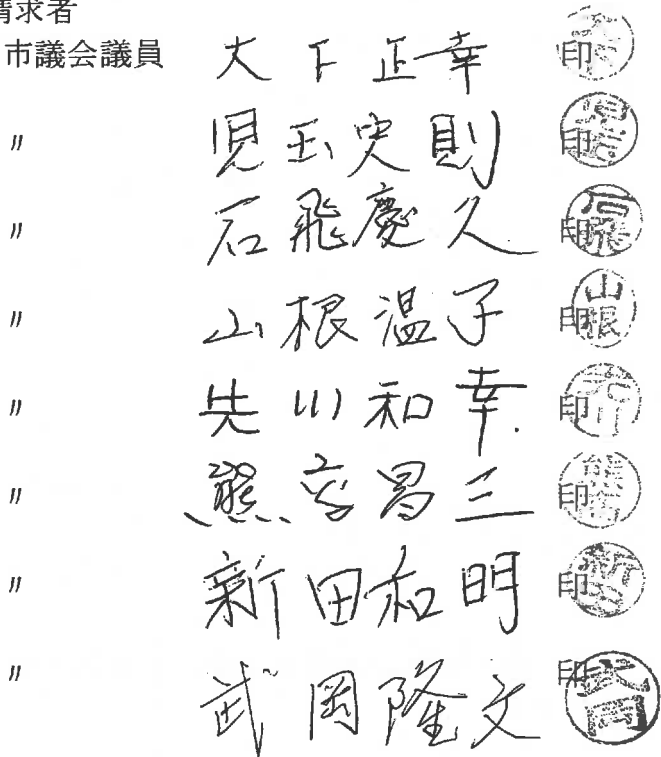 請求者
市議会議員 大下正幸 印
〃 児玉史則 印
〃 石飛慶久 印
〃 山根温子 印
〃 先川和幸 印
〃 熊高昌三 印
〃 新田和明 印
〃 武岡隆文 印